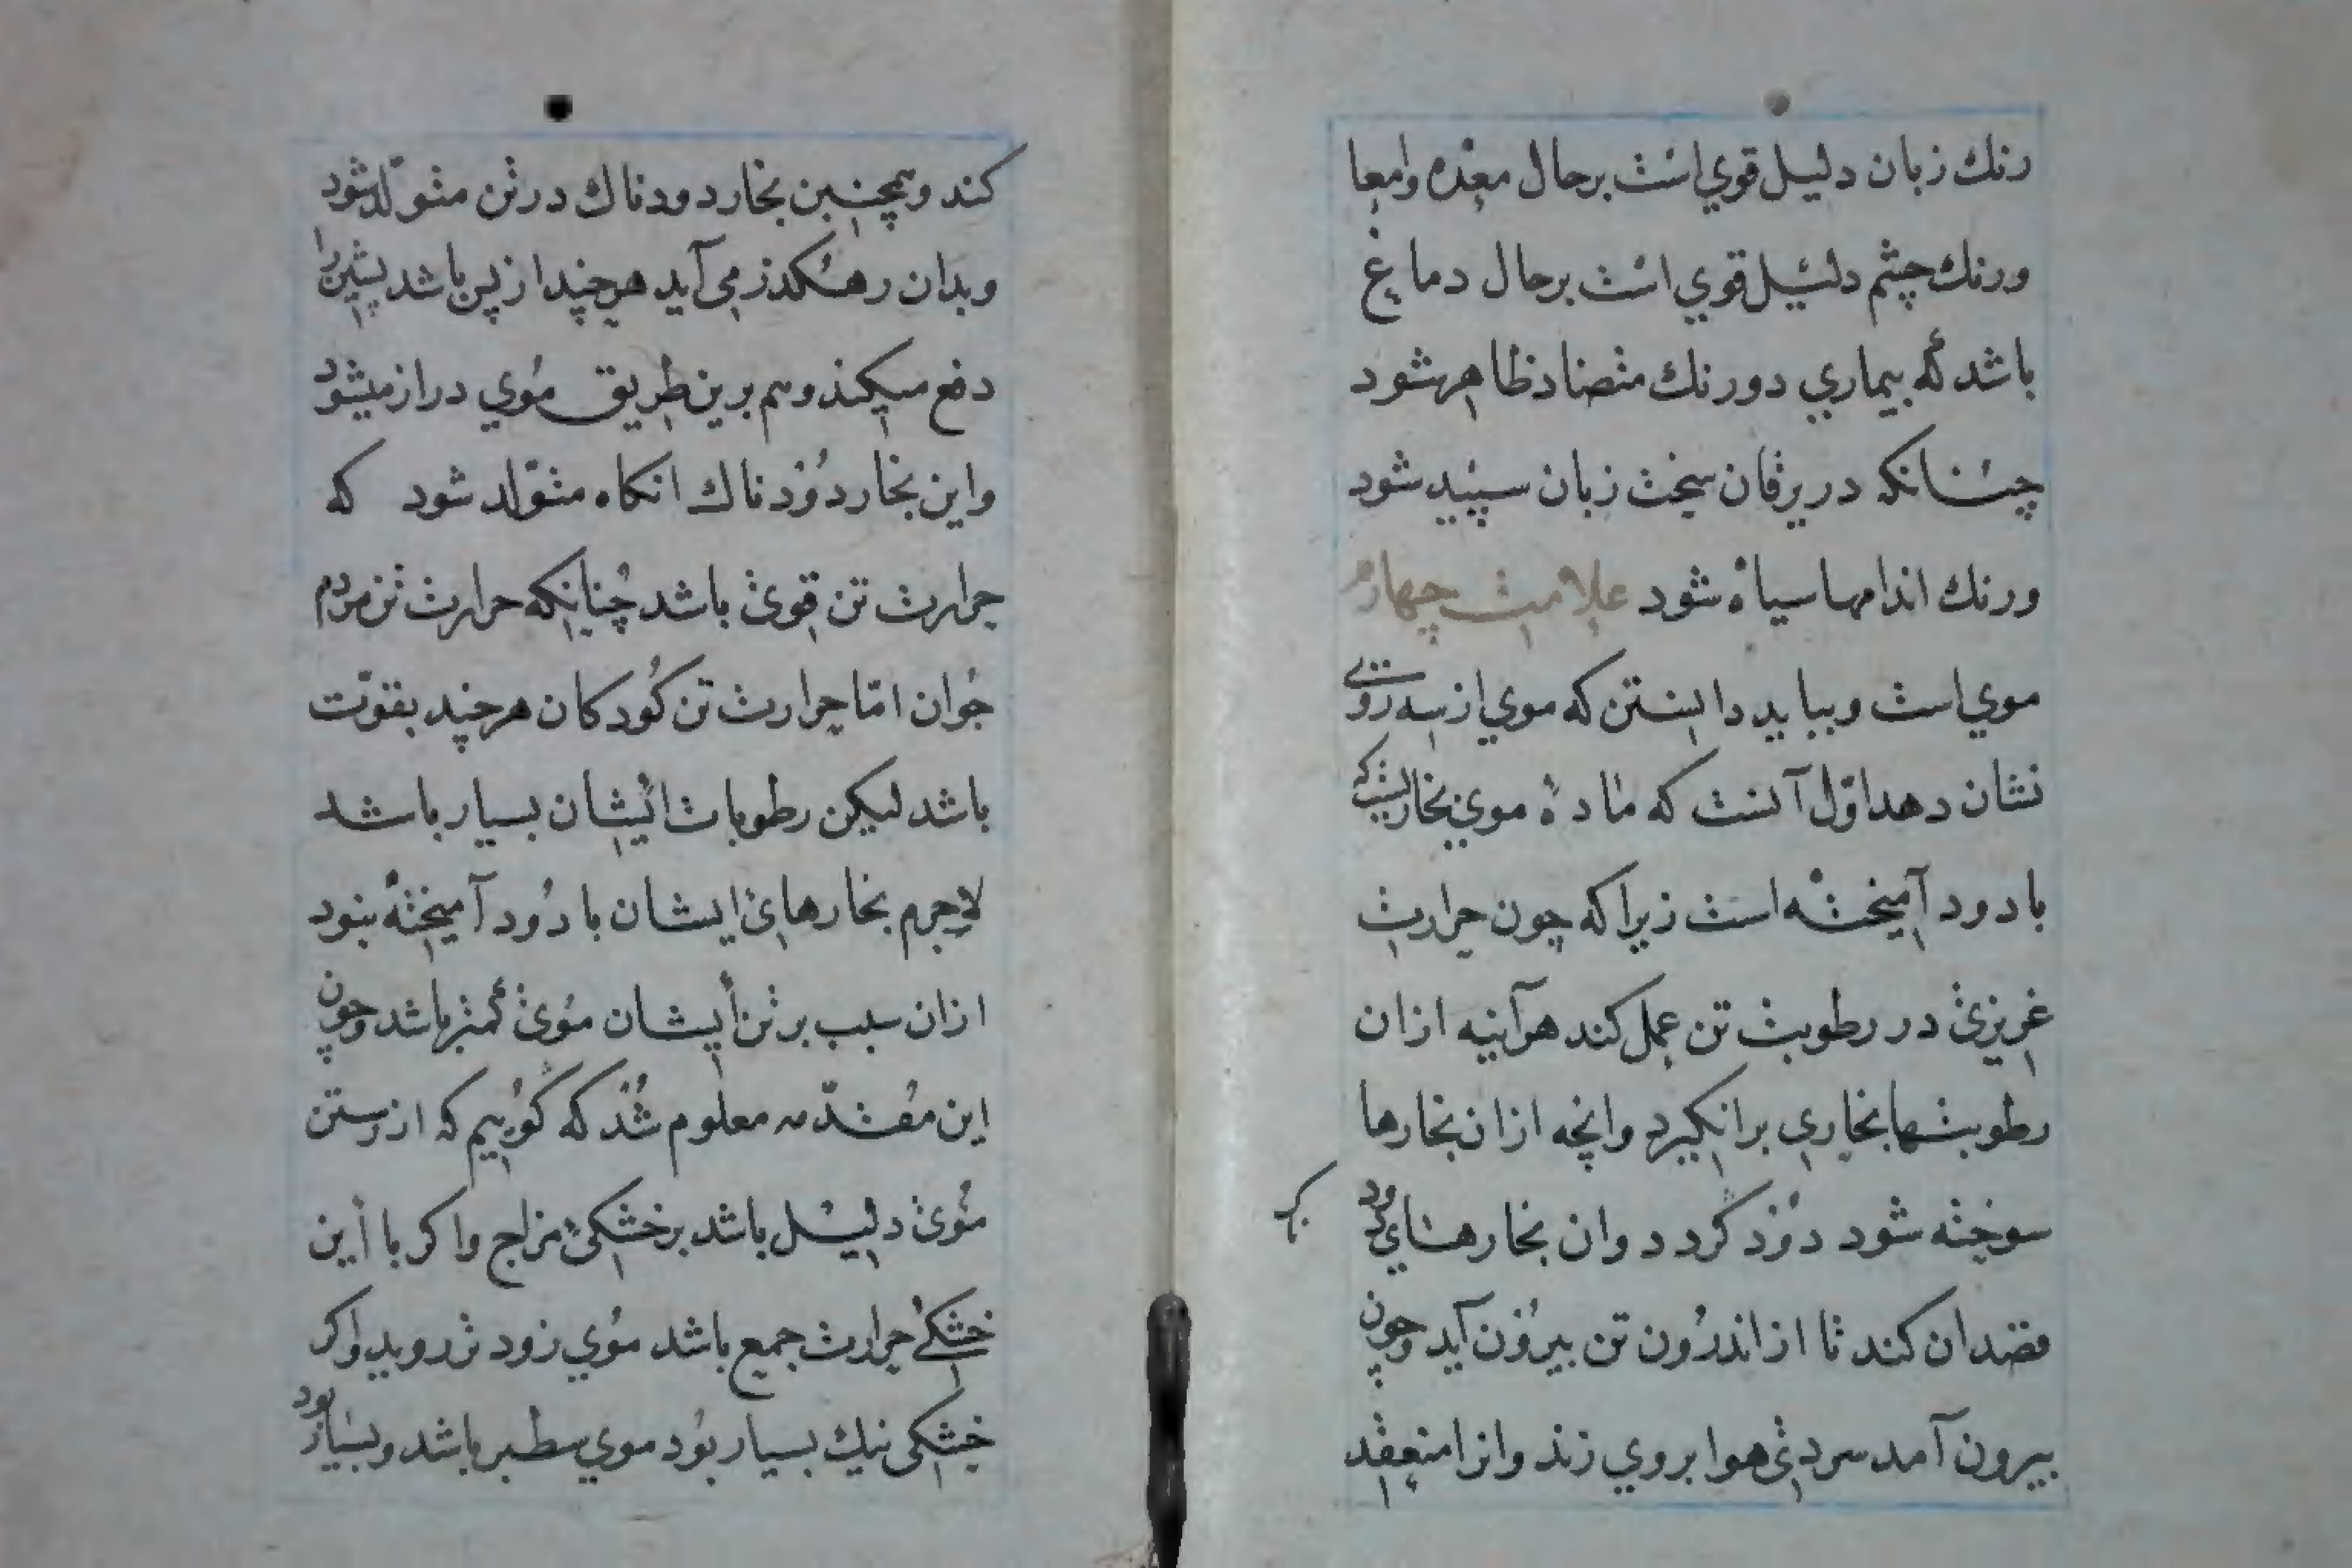 رنك زبان دليل قوي است برحال معده وامعا
ورنك چشم دليل قوي است برحال دماغ
باشد كه بيماري دورنك متضاد ظاهر شود
چنانكه در يرقان سخت زبان سپيد شود
ورنك اندامها سياه شود علامت چهارم
موي است وببايد دانستن كه موي از سه روي
نشان دهد اوّل آنست كه مادهٔ موي بخاريست كه
با دود آميخته است زيرا كه چون حرارت
غريزي در رطوبت تن عمل كند هرآينه ازان
رطوبتها بخاري برانكيزد وانچه ازان بخارها
سوخته شود دُوذ كردد وان بخارهاي دود
قصد ان كند تا از اندرُون تن بيرُون آيد وچون
بيرون آمد سردي هوا بروي زند وانرا منعقد
كند وهمچنين بخار دودناك در تن متولّد شود
وبدان رهكذر مي آيد هرچند از پس باشد پيشين را
دفع ميكند وهم برين طريق مُوي دراز ميشود
واين بخار دُوذناك انكاه متولّد شود كه
حرارت تن قوي باشد چُنانكه حرارت تن مردم
جُوان امّا حرارت تن كُودكان هرچند بقوّت
باشد ليكن رطوبات ايشان بسيار باشد
لاجرم بخارهاي ايشان با دُود آميخته نبود
ازان سبب بر تن ايشان مُوي كمتر باشد وچون
اين مُقدّمه معلوم شُد كه كُوييم كه از رستن
مُوي دليل باشد بر خشكي مزاج واكر با اين
خشكي حرارت جمع باشد مُوي زود تر رويد واكر
خشكي نيك بسيار بُود موي سطبر باشد وبسيار بود